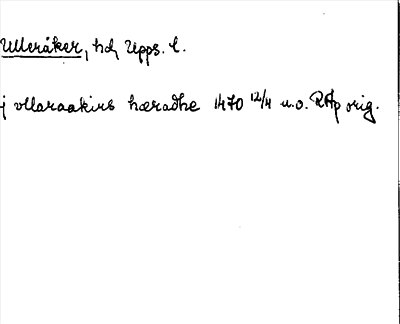 Ulleråker, hd, Upps. l.
j vllaraakirs hæradhe 1470 12/4 u.o. RAp orig.